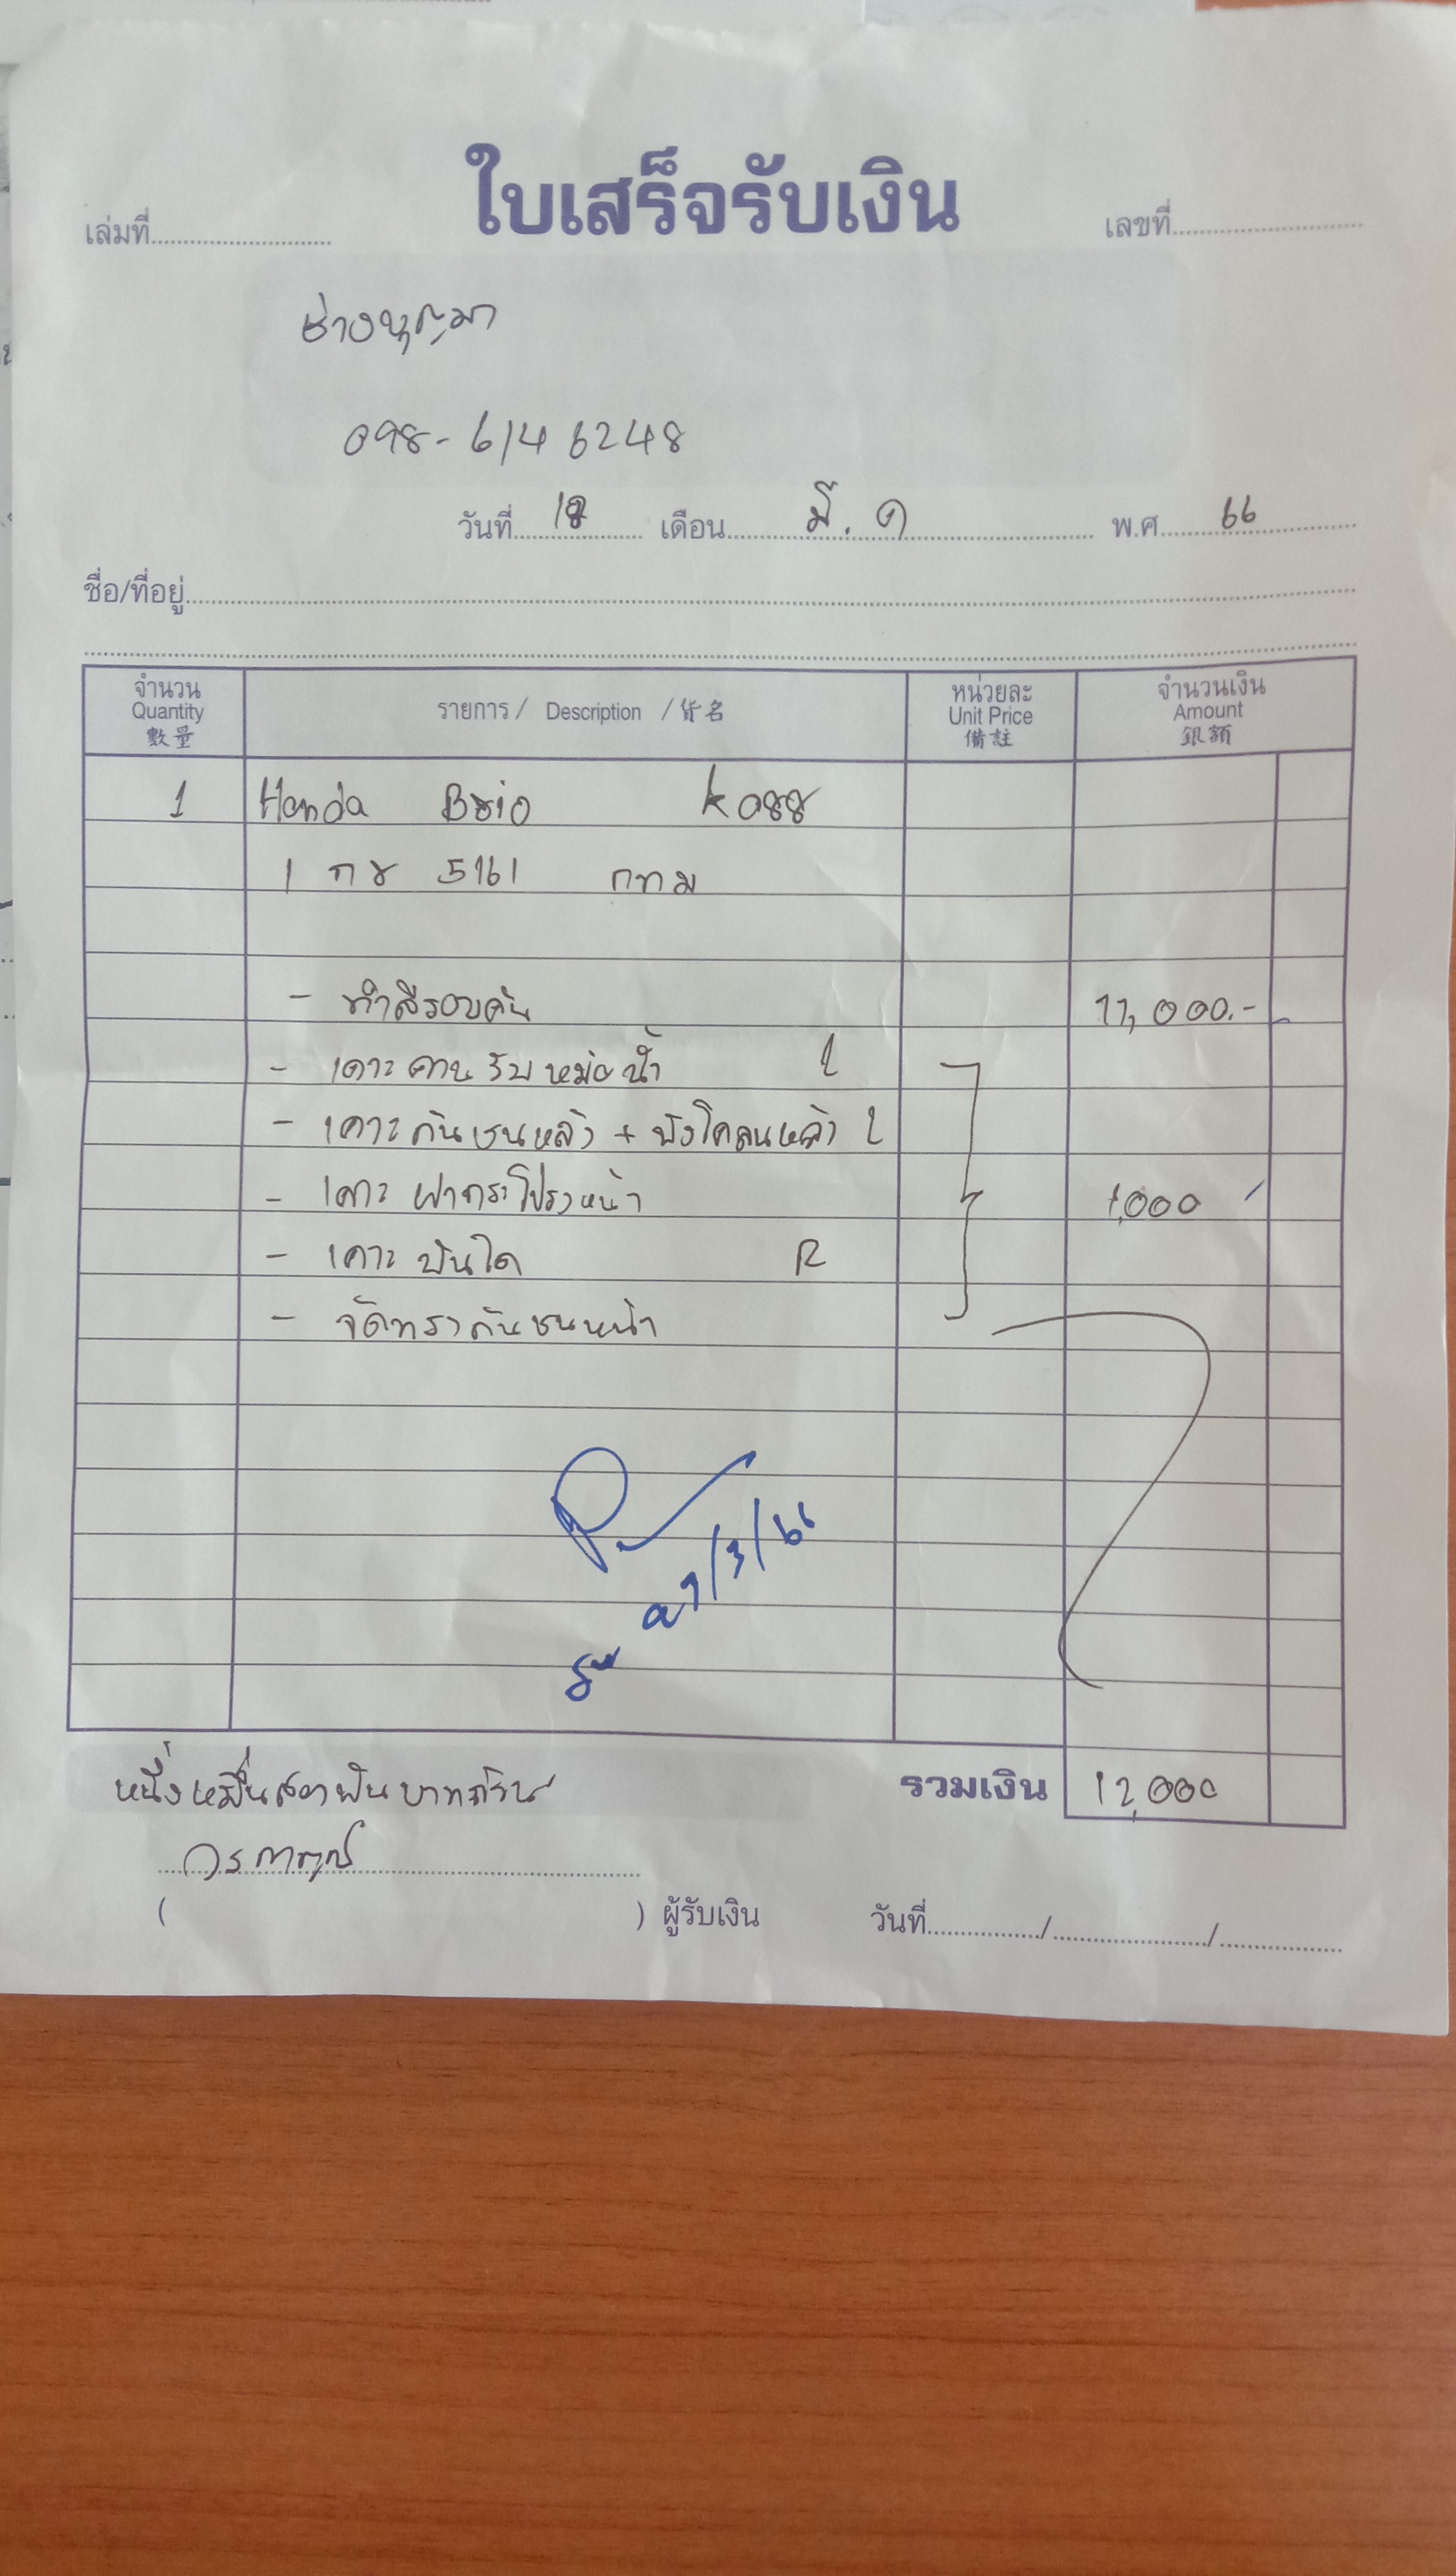 ใบเสร็จรับเงิน
เล่มที่ เลขที่
ช่างบุญมา
098-6146248
วันที่ 18 เดือน มี.ค พ.ศ. 66
ชื่อ/ที่อยู่
จำนวน Quantity 數量 รายการ / Description / 貨名 หน่วยละ Unit Price 備註 จำนวนเงิน Amount 銀額
1 Honda Brio K088
1 กx 5161 กทม
- ทำสีรอบคัน 11,000.-
- เคาะคานรับหม้อน้ำ L
- เคาะกันชนหลัง + บังโคลนหลัง L
- เคาะฝากระโปรงหน้า 1,000
- เคาะบันได R
- จัดทรงกันชนหน้า
/3/66
หนึ่งหมื่นสองพันบาทถ้วน รวมเงิน 12,000
( ) ผู้รับเงิน วันที่ / /